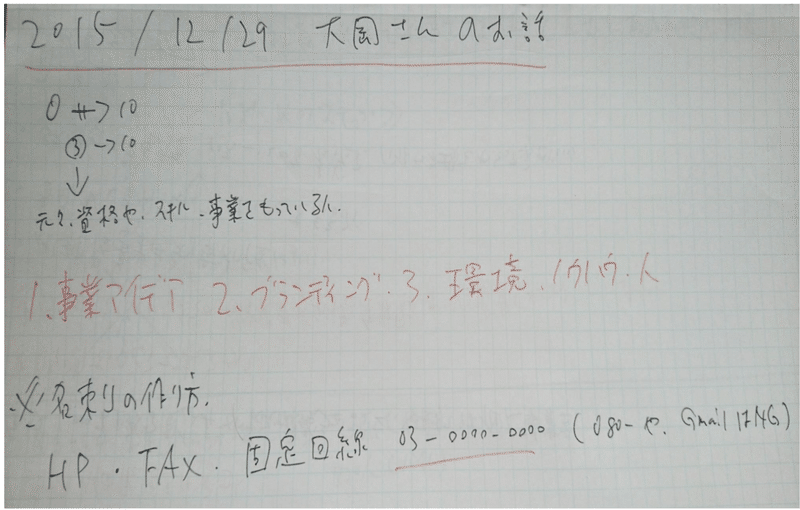 2015/12/29 大岡さんのお話
0 → 10
③ → 10
↓
元々、資格や、スキル、事業をもっている人。
1、事業アイデア 2、ブランディング、3、環境、ノウハウ、人
※名刺の作り方、
HP・FAX・固定回線 03-0000-0000 (080-や、GmailはNG)